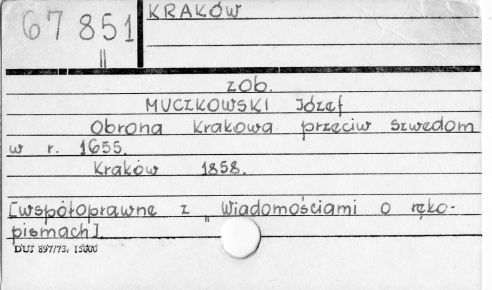 67 851
II
KRAKÓW
zob.
MUCZKOWSKI Józef
Obrona Krakowa przeciw Szwedom
w r. 1655.
Kraków 1858.
[współoprawne z „Wiadomościami o ręko-
pismach]
DUJ 897/73. 15000